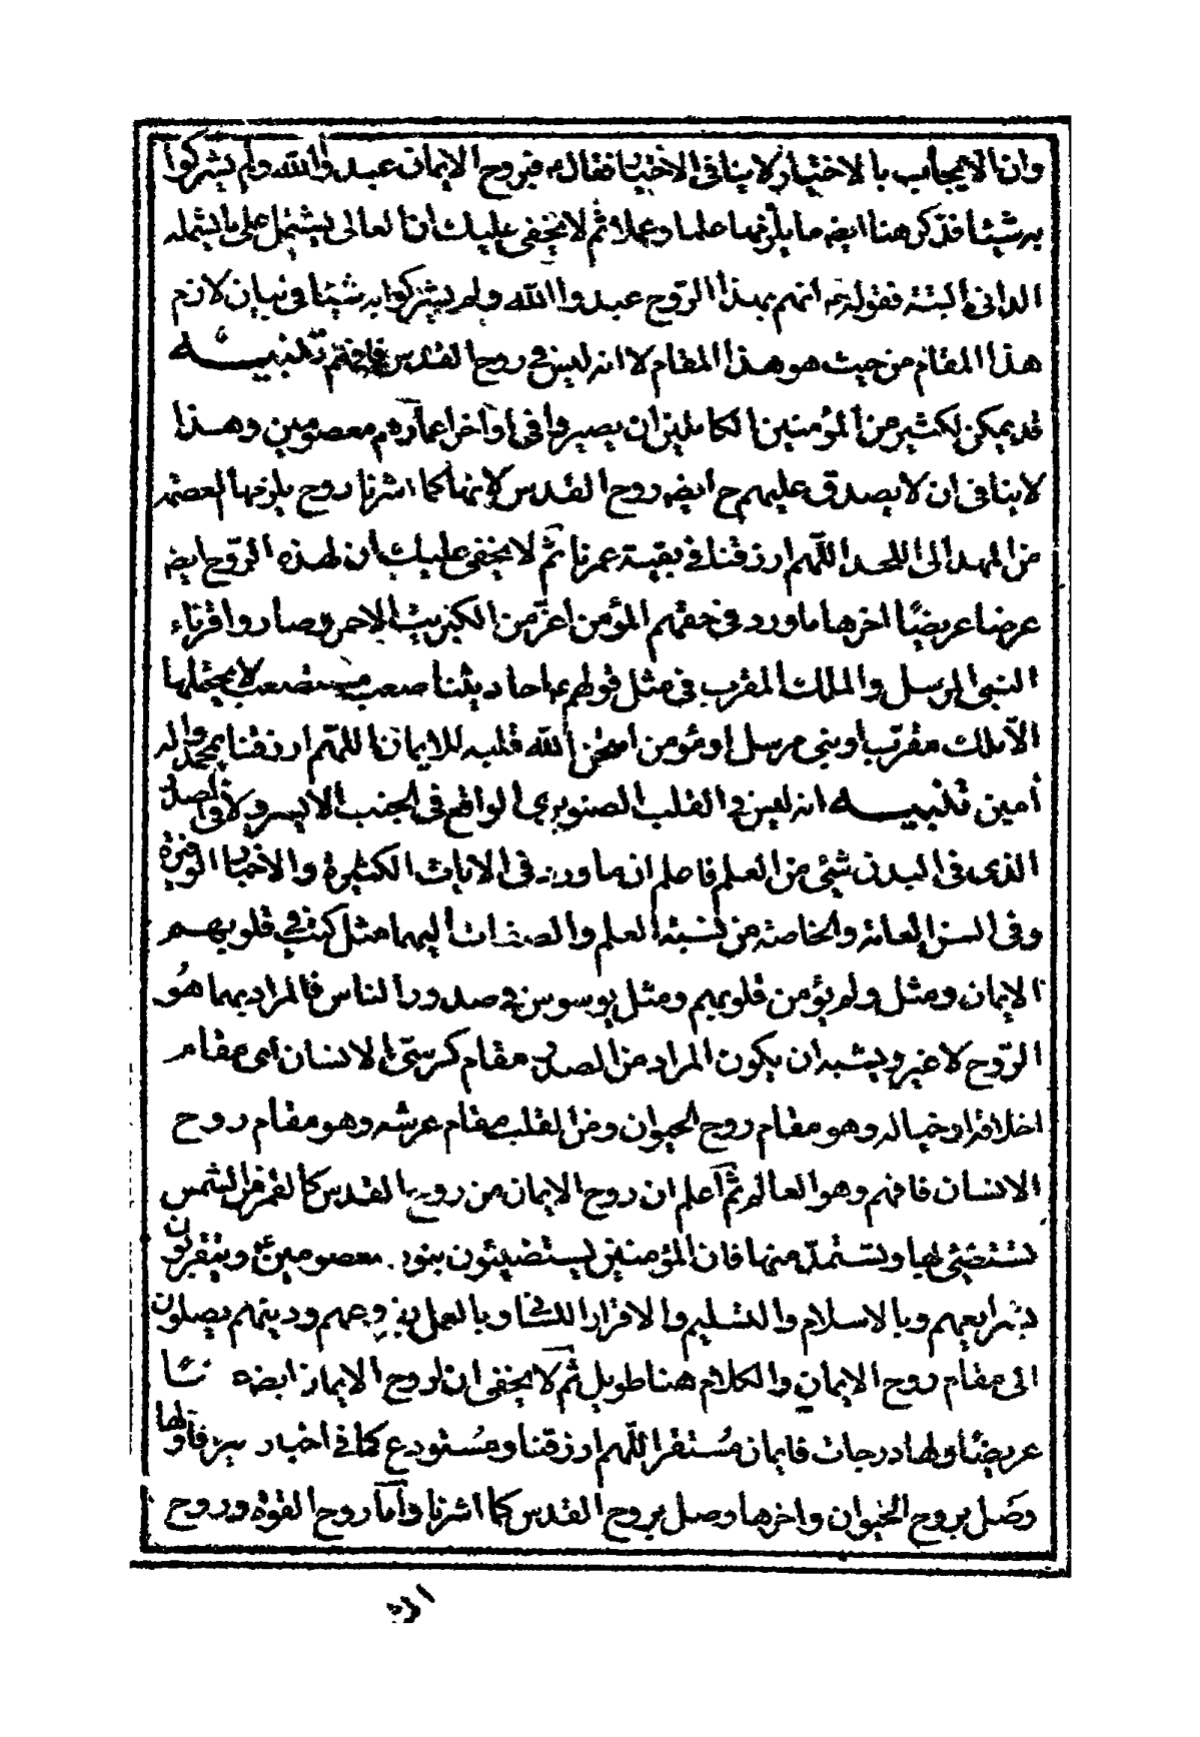 وان الايجاب بالاختيار لا ينافى الاختيار فقال ع فبروح الايمان عبدوا الله ولم يشركوا
به شيئا فذكر هنا ايضه ما يلزمها علما وعملا ثم لا يخفى عليك ان العالى يشتمل على ما يشمله
الدانى البتة فقوله ع انهم بهذا الروح عبدوا الله ولم يشركوا به شيئا فى بيان لازم
هذا المقام من حيث هو هذا المقام لا انه ليس فى روح القدس فافهم تنبيه
قد يمكن لكثير من المؤمنين الكاملين ان يصيروا فى اواخر اعمارهم معصومين وهذا
لا ينافى ان لا يصدق عليهم ح ايضه روح القدس لانها كما اشرنا روح يلزمها العصمة
من المهد الى اللحد اللهم ارزقنا فى بقية عمرنا ثم لا يخفى عليك ان لهذه الروح ايضه
عرضا عريضًا اخرها ما ورد فى حقهم المؤمن اعز من الكبريت الاحمر وصاروا قرناء
النبى المرسل والملك المقرب فى مثل قولهم ع احاديثنا صعب مستصعب لا يحتملها
الا ملك مقرب او نبى مرسل او مؤمن امتحن الله قلبه للايمان اللهم ارزقنا بمحمد واله
امين تنبيه انه ليس فى القلب الصنوبرى الواقع فى الجنب الايسر ولا فى الصدر
الذى فى البدن شئ من العلم فاعلم ان ما ورد فى الايات الكثيرة والاخبار الوفيرة
وفى السن العامة والخاصة من نسبة العلم والصفات اليهما مثل كتب فى قلوبهم
الايمان ومثل ولم يؤمن قلوبهم ومثل يوسوس فى صدور الناس فالمراد بهما هو
الروح لا غير ويشبه ان يكون المراد من الصدر مقام كرسى الانسان اى مقام
اخلاقه او خياله وهو مقام روح الحيوان ومن القلب مقام عرشه وهو مقام روح
الانسان فافهم وهو العالم ثم اعلم ان روح الايمان من روح القدس كالقمر من الشمس
تستضئ بها وتستمد منها فان المؤمنين يستضيئون بنور معصومين ع ويتقربون
بشرايعهم وبالاسلام والتسليم والاقرار اللسانى وبالعمل بفروعهم ودينهم يصلون
الى مقام روح الايمان والكلام هنا طويل ثم لا يخفى ان لروح الايمان ايضه عرضا
عريضًا ولها درجات فايمان مستقر اللهم ارزقنا ومستودع كما فى اخبار كثيرة فاولها
وصل بروح الحيوان واخرها وصل بروح القدس كما اشرنا واما روح القوة وروح